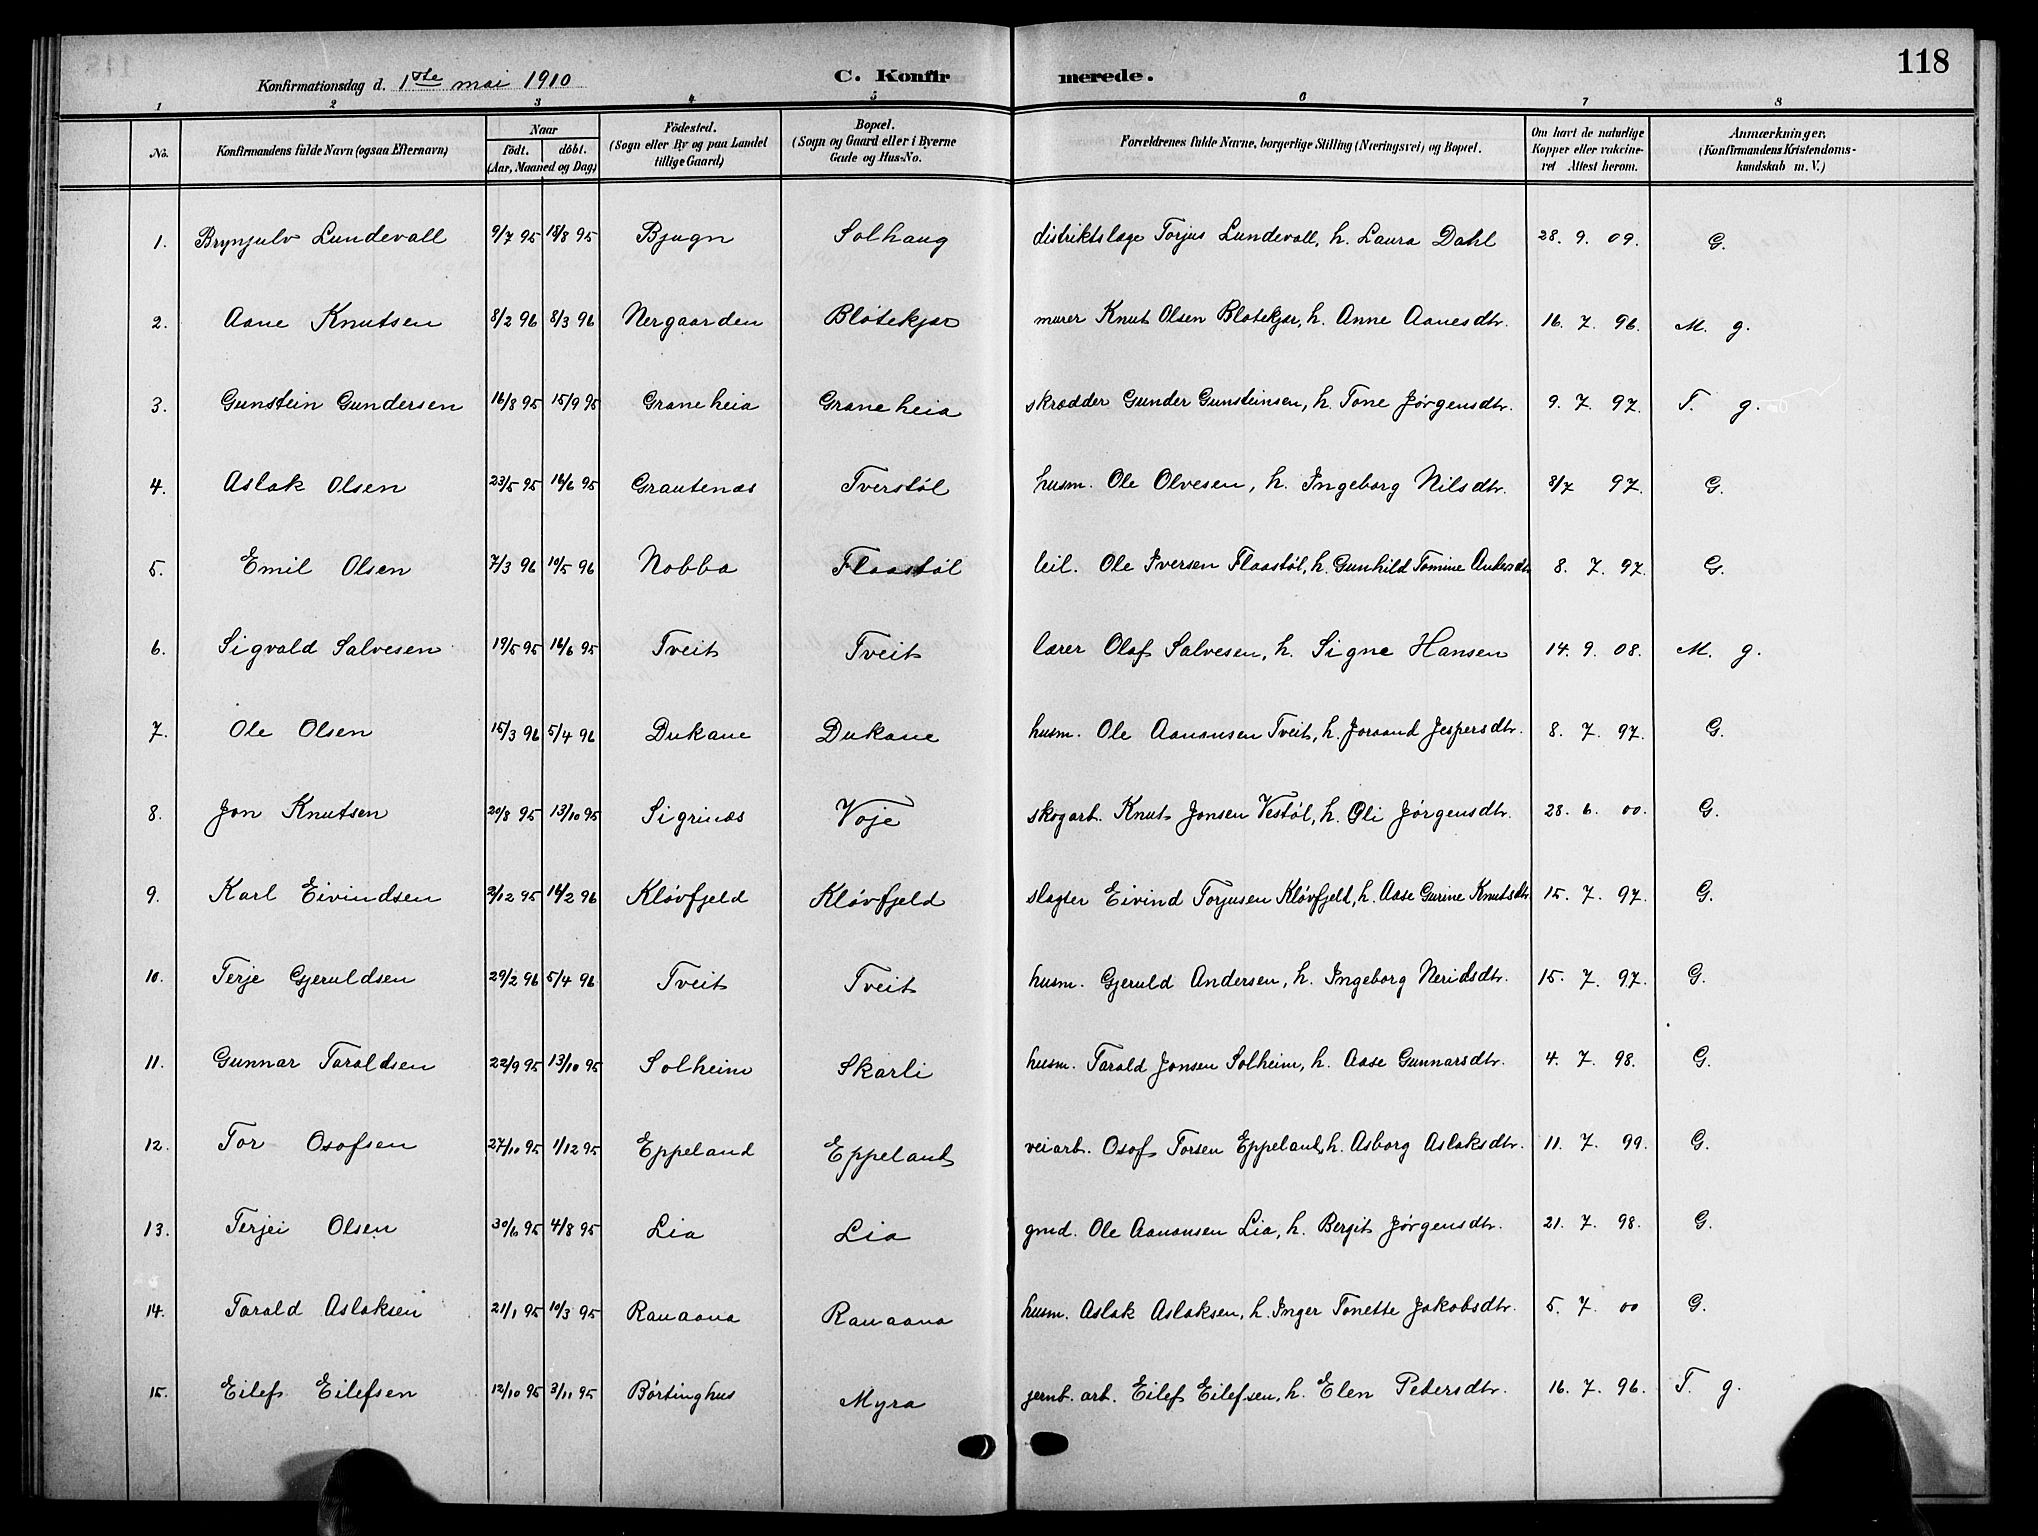 118
Konfirmationsdag d. 1ste mai 1910 C. Konfirmerede.
1 2 3 4 5 6 7 8
No. Konfirmandens fulde Navn (ogsaa Efternavn) Naar født. døbt. (Aar, Maaned og Dag) Fødested. (Sogn eller By og paa Landet tillige Gaard) Bopæl. (Sogn og Gaard eller i Byerne Gade og Hus-No. Forældrenes fulde Navne, borgerlige Stilling (Næringsvei) og Bopæl. Om havt de naturlige Kopper eller vaccineret Attest herom. Anmærkninger, (Konfirmandens Kristendomskundskab m. V.)
1. Brynjulv Lundevall 9/7 95 18/8 95 Bjugn Solhaug distriktslæge Torjus Lundevall, h. Laura Dahl 28. 9. 09. G.
2. Aane Knutsen 8/2 96 8/3 96 Nergaarden Bløtekjær murer Knut Olsen Bløtekjær, h. Anne Aanesdtr. 16. 7. 96. M. g.
3. Gunstein Gundersen 16/8 95 15/9 95 Graneheia Graneheia skrædder Gunder Gunsteinsen, h. Tone Jørgensdtr. 9. 7. 97. T. g.
4. Aslak Olsen 23/5 95 16/6 95 Grautenæs Tverstøl husm. Ole Olvesen, h. Ingeborg Nilsdtr. 8/7 97. G.
5. Emil Olsen 7/3 96 10/5 96 Nobba Flaastøl leil. Ole Iversen Flaastøl, h. Gunhild Tomine Andersdtr 8. 7. 97. G.
6. Sigvald Salvesen 19/5 95 16/6 95 Tveit Tveit lærer Olaf Salvesen, h. Signe Hansen 14. 9. 08. M. g.
7. Ole Olsen 15/3 96 5/4 96 Dukane Dukane husm. Ole Aanonsen Tveit, h. Joraand Jespersdtr. 8. 7. 97. G.
8. Jon Knutsen 20/8 95 13/10 95 Sigrinæs Voje skogarb. Knut Jonsen Vestøl, h. Oli Jørgensdtr. 28. 6. 00. G.
9. Karl Eivindsen 2/12 95 16/2 96 Kløvfjeld Kløvfjeld slagter Eivind Torjusen Kløvfjeld, h. Aase Gurine Knutsdtr. 15. 7. 97. G.
10. Terje Gjeruldsen 29/2 96 5/4 96 Tveit Tveit husm. Gjeruld Andersen, h. Ingeborg Neridsdtr. 15. 7. 97. G.
11. Gunnar Taraldsen 22/9 95 13/10 95 Solheim Skarli husm. Tarald Jonsen Solheim, h. Aase Gunnarsdtr. 4. 7. 98. G.
12. Tor Osofsen 27/10 95 1/12 95 Eppeland Eppeland veiarb. Osof Torsen Eppeland, h. Asborg Aslaksdtr. 11. 7. 99. G.
13. Terjei Olsen 30/6 95 4/8 95 Lia Lia gmd. Ole Aanonsen Lia, h. Bergit Jørgensdtr. 21. 7. 98. G.
14. Tarald Aslaksen 21/1 95 10/3 95 Ranaana Ranaana husm. Aslak Aslaksen, h. Inger Tonette Jakobsdtr. 5. 7. 00 G.
15. Eilef Eilefsen 12/10 95 3/11 95 Børtinghus Myra jernb. arb. Eilef Eilefsen, h. Elen Petersdtr. 16. 7. 96. T. g.